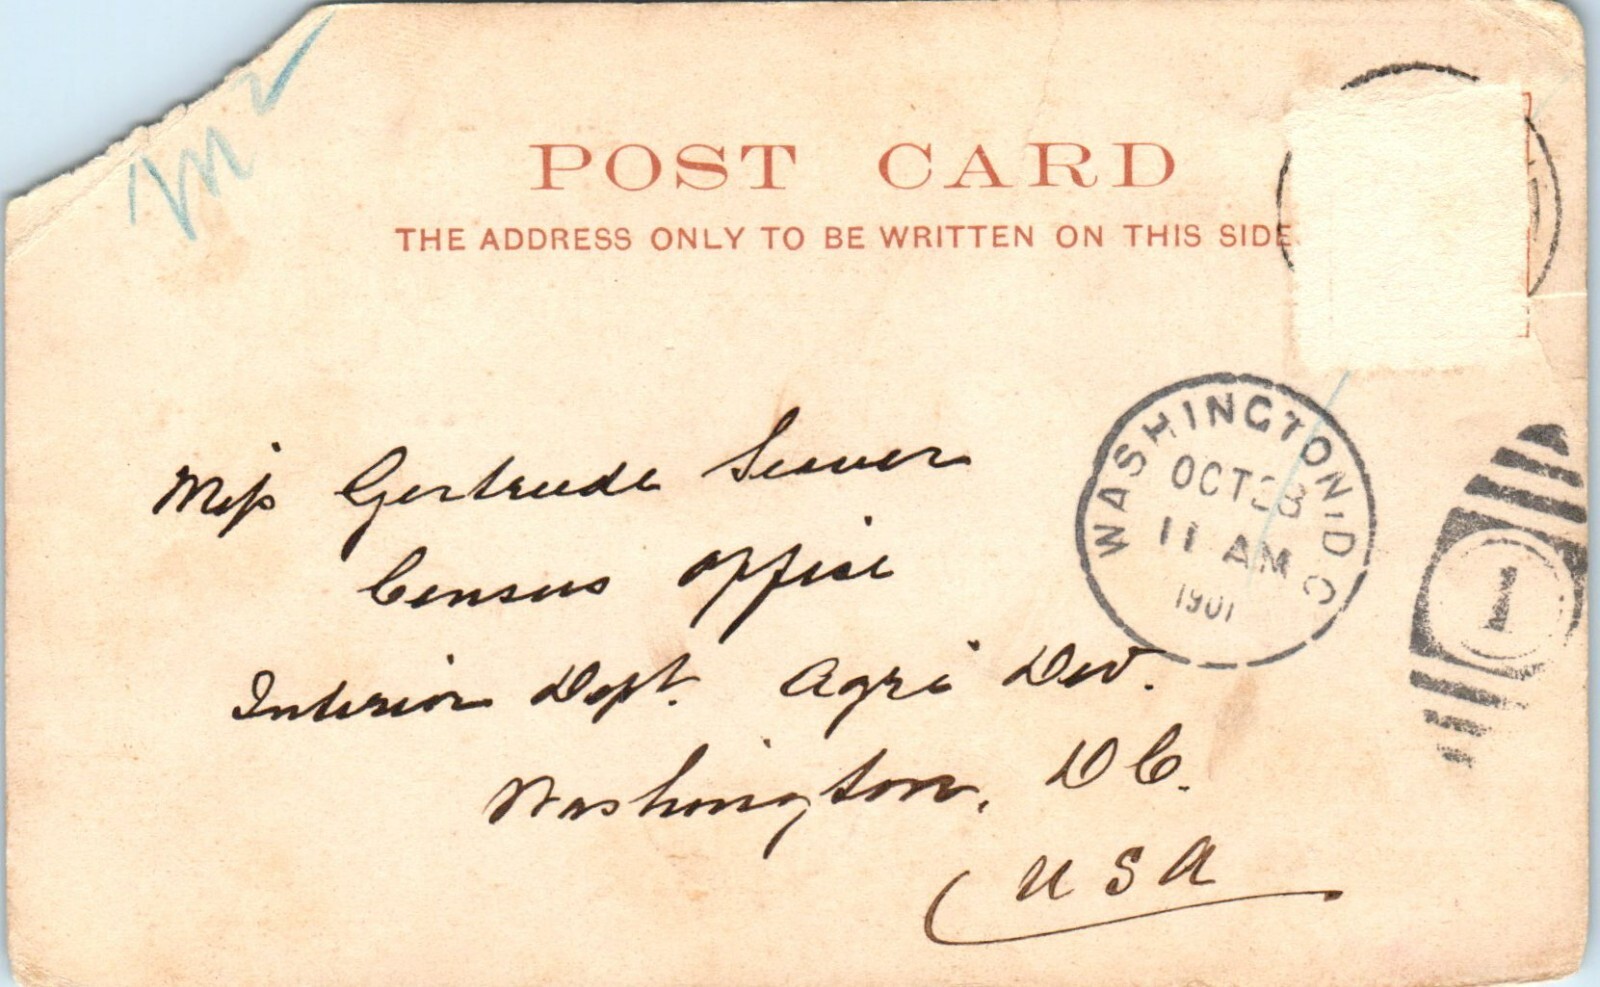 POST CARD
THE ADDRESS ONLY TO BE WRITTEN ON THIS SIDE
Miss Gertrude Seaver
Census Office
Interior Dept. Agri Div.
Washington, D C.
U S A
WASHINGTON, D.C.
OCT 28
11 AM
1901
1